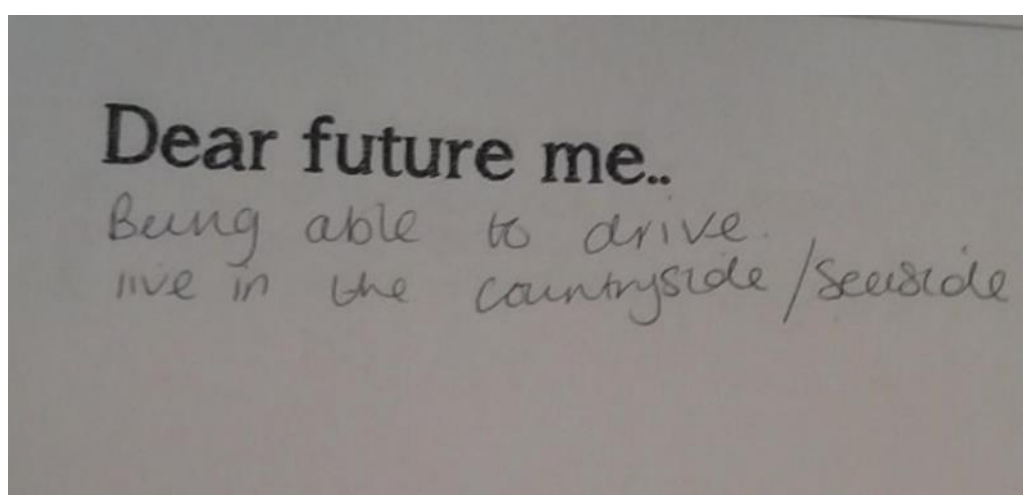 Dear future me..
Being able to drive.
live in the countryside / seaside